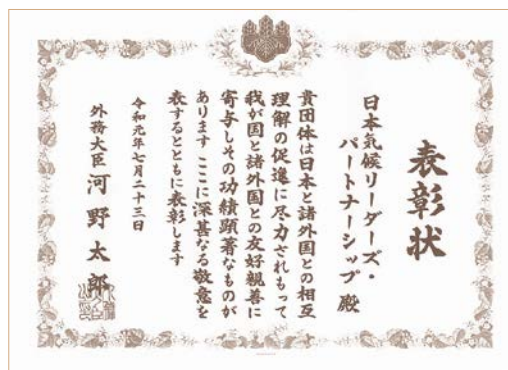 表彰状
日本気候リーダーズ・
パートナーシップ 殿
貴団体は日本と諸外国との相互
理解の促進に尽力されもって
我が国と諸外国との友好親善に
寄与しその功績顕著なものが
あります ここに深甚なる敬意を
表するとともに表彰します
令和元年七月二十三日
外務大臣 河野太郎